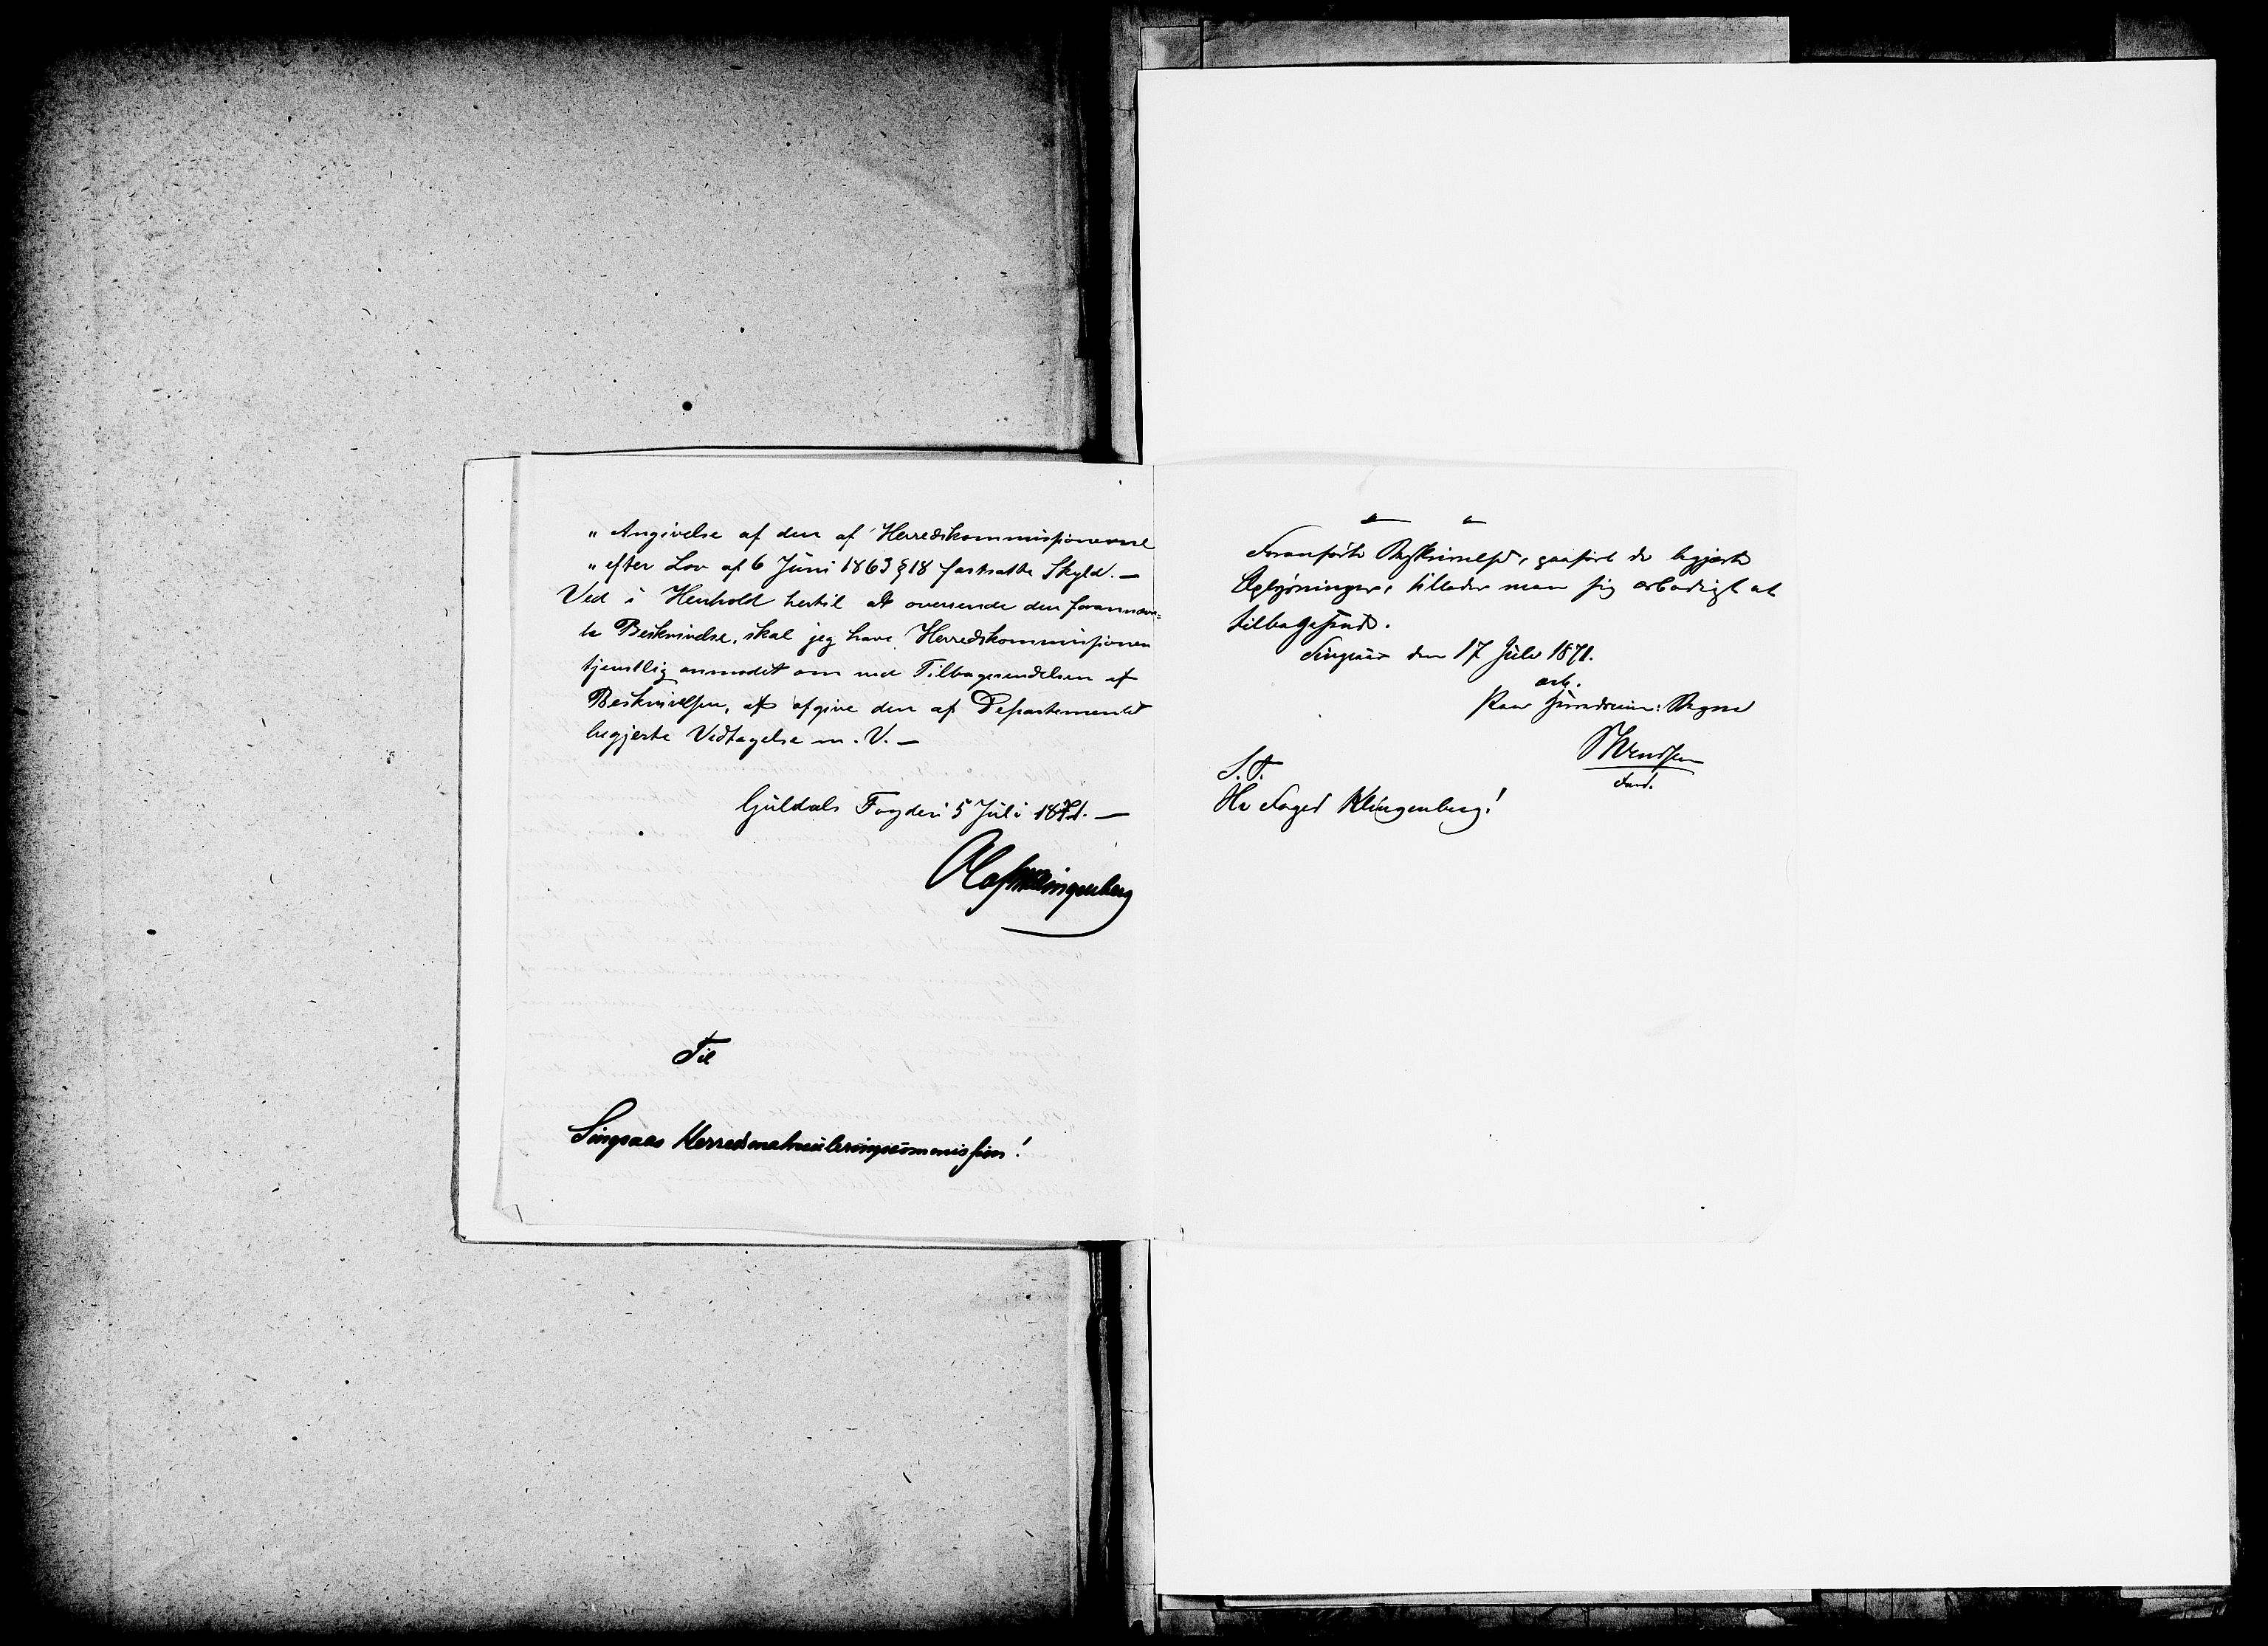 „ Angivelse af den af Herredskommissionerne
„ efter Lov af 6 Juni 1863 § 18 fastsatte Skyld. —
Ved i Henhold hertil at oversende den forannævn-
te Beskrivelse, skal jeg have Herredskommissionen
tjenstlig anmodet om ved Tilbagesendelsen af
Beskrivelsen, at afgive den af Departementet
begjerte Vedtagelse m. V. —
Guldals Fogderi 5 Juli 1871. —
Olaf Klingenberg
Til
Singsaas Herredsmatriculeringscommission!
Foranførte Beskrivelse, paaført de begjærte
Oplysninger, tillader man sig ærbødigst at
tilbagesende.
Singsaas den 17 Juli 1871.
ærb.
Paa Vegne
Fmd.
S. T.
Hr Foged Klingenberg!